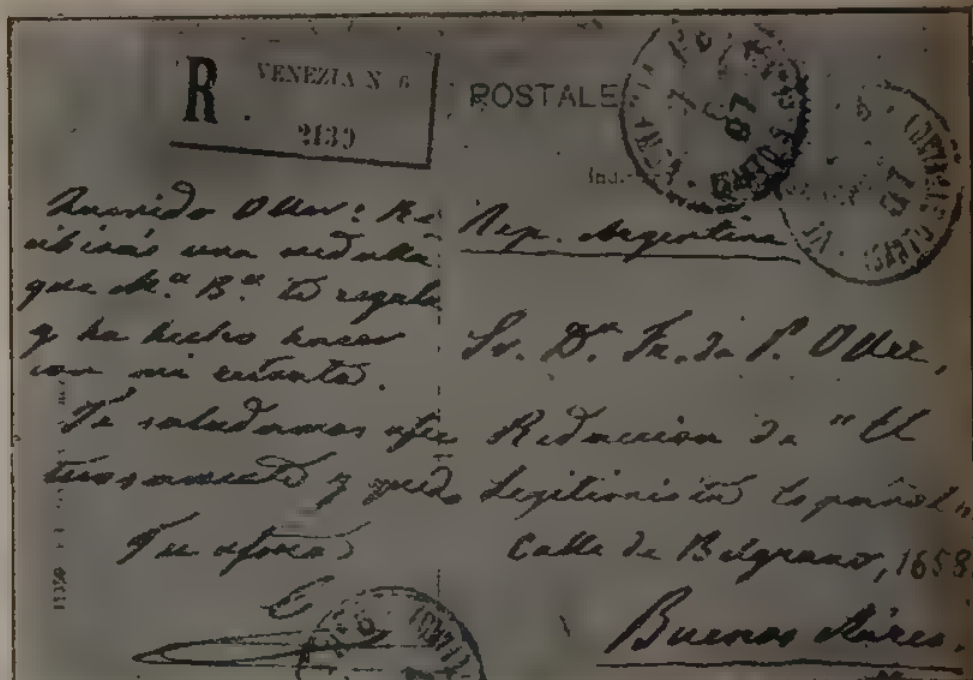 R VENEZIA N 6
2139
POSTALE
Querido Oller: Re-
cibirás una medalla
que M.ª B.ª te regala
y ha hecho hacer
con mi retrato.
Te saludamos afec
tuosamente y quedo
Tu afmo
Rep. Argentina
Sr. Dn. Fr. de P. Oller,
Redaccion de "El
Legitimista Español"
Calle de Belgrano, 1658
Buenos Aires.